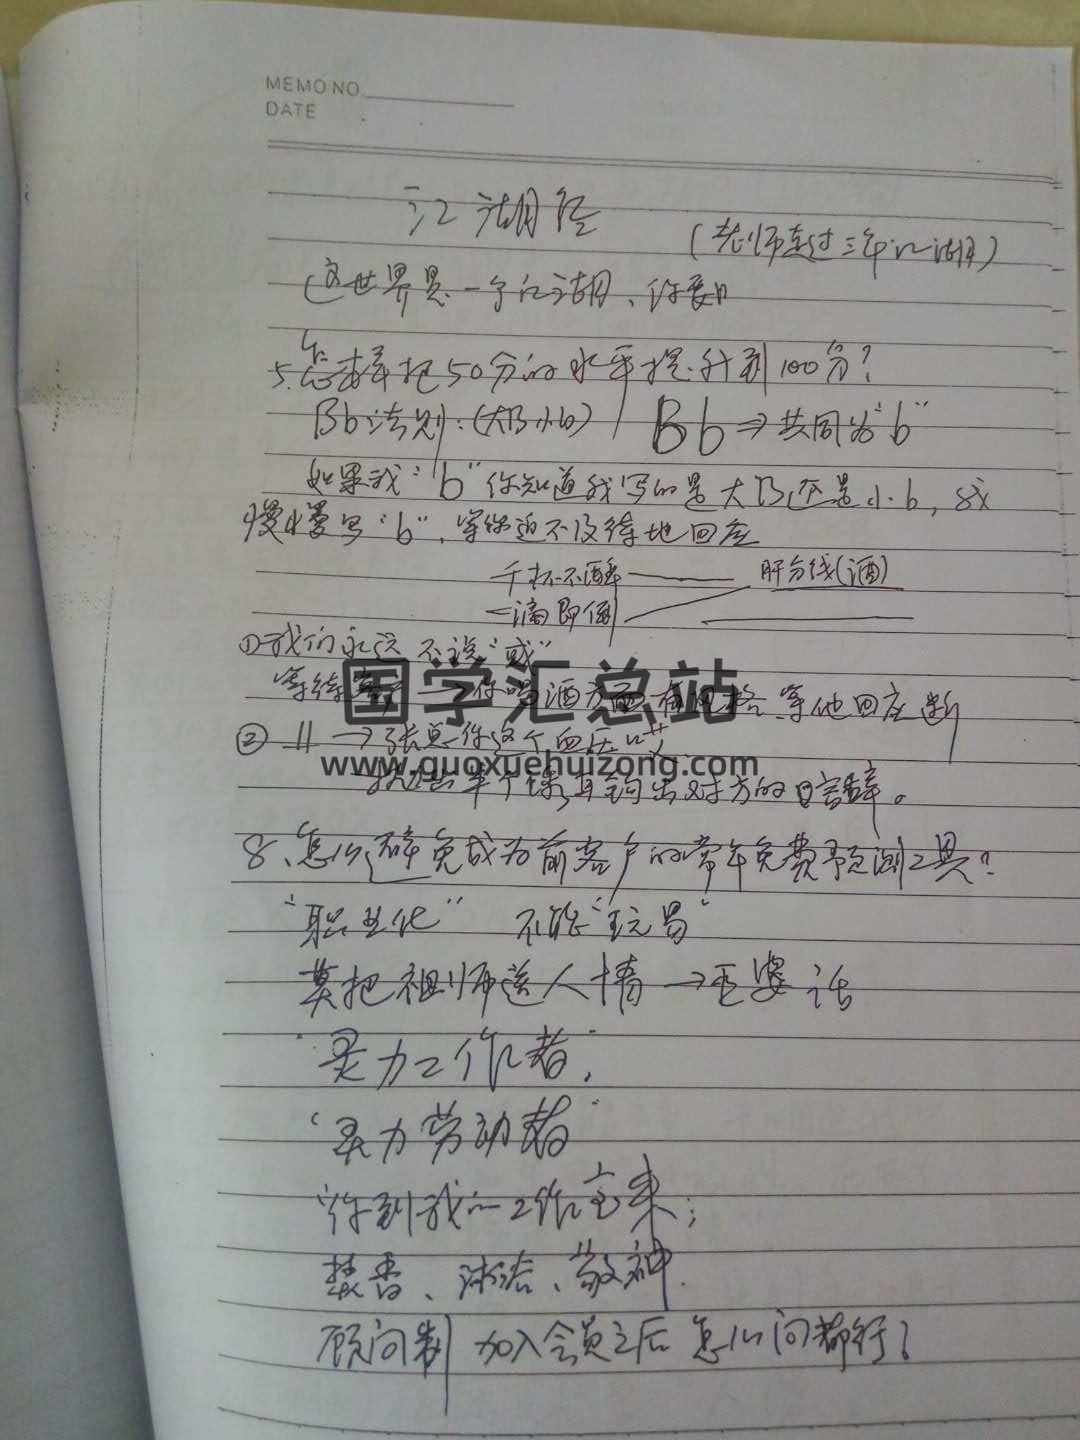 MEMO NO.
DATE
江湖经
(老师走过三年江湖)
这世界是一个江湖、你要
5.怎样把50分的水平提升到100分?
Bb法则:(大B小b) Bb⇒共同为"b"
如果我:"b"你知道我写的是大B还是小b,我
慢慢写"b",等你迫不及待地回应
千杯不醉 肝分线(酒)
一滴即倒
①我们永远不说"或"
等待客户 你喝酒方面有风格、等他回应断
② 〃 → 你这个血压
半个球,再钩出对方的言辞。
8、怎么避免成为前客户的常年免费预测工具?
"职业化" 不能"玩易"
莫把祖师送人情→王婆话
"灵力工作者",
"灵力劳动者"
"你到我的工作室来;
焚香、沐浴、敬神.
顾问制 加入会员之后 怎么问都行?
国学汇总站
www.guoxuehuizong.com